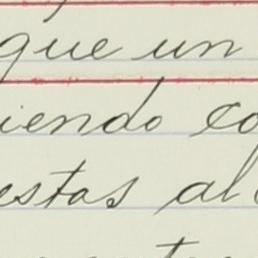 que un
iendo co
estas al